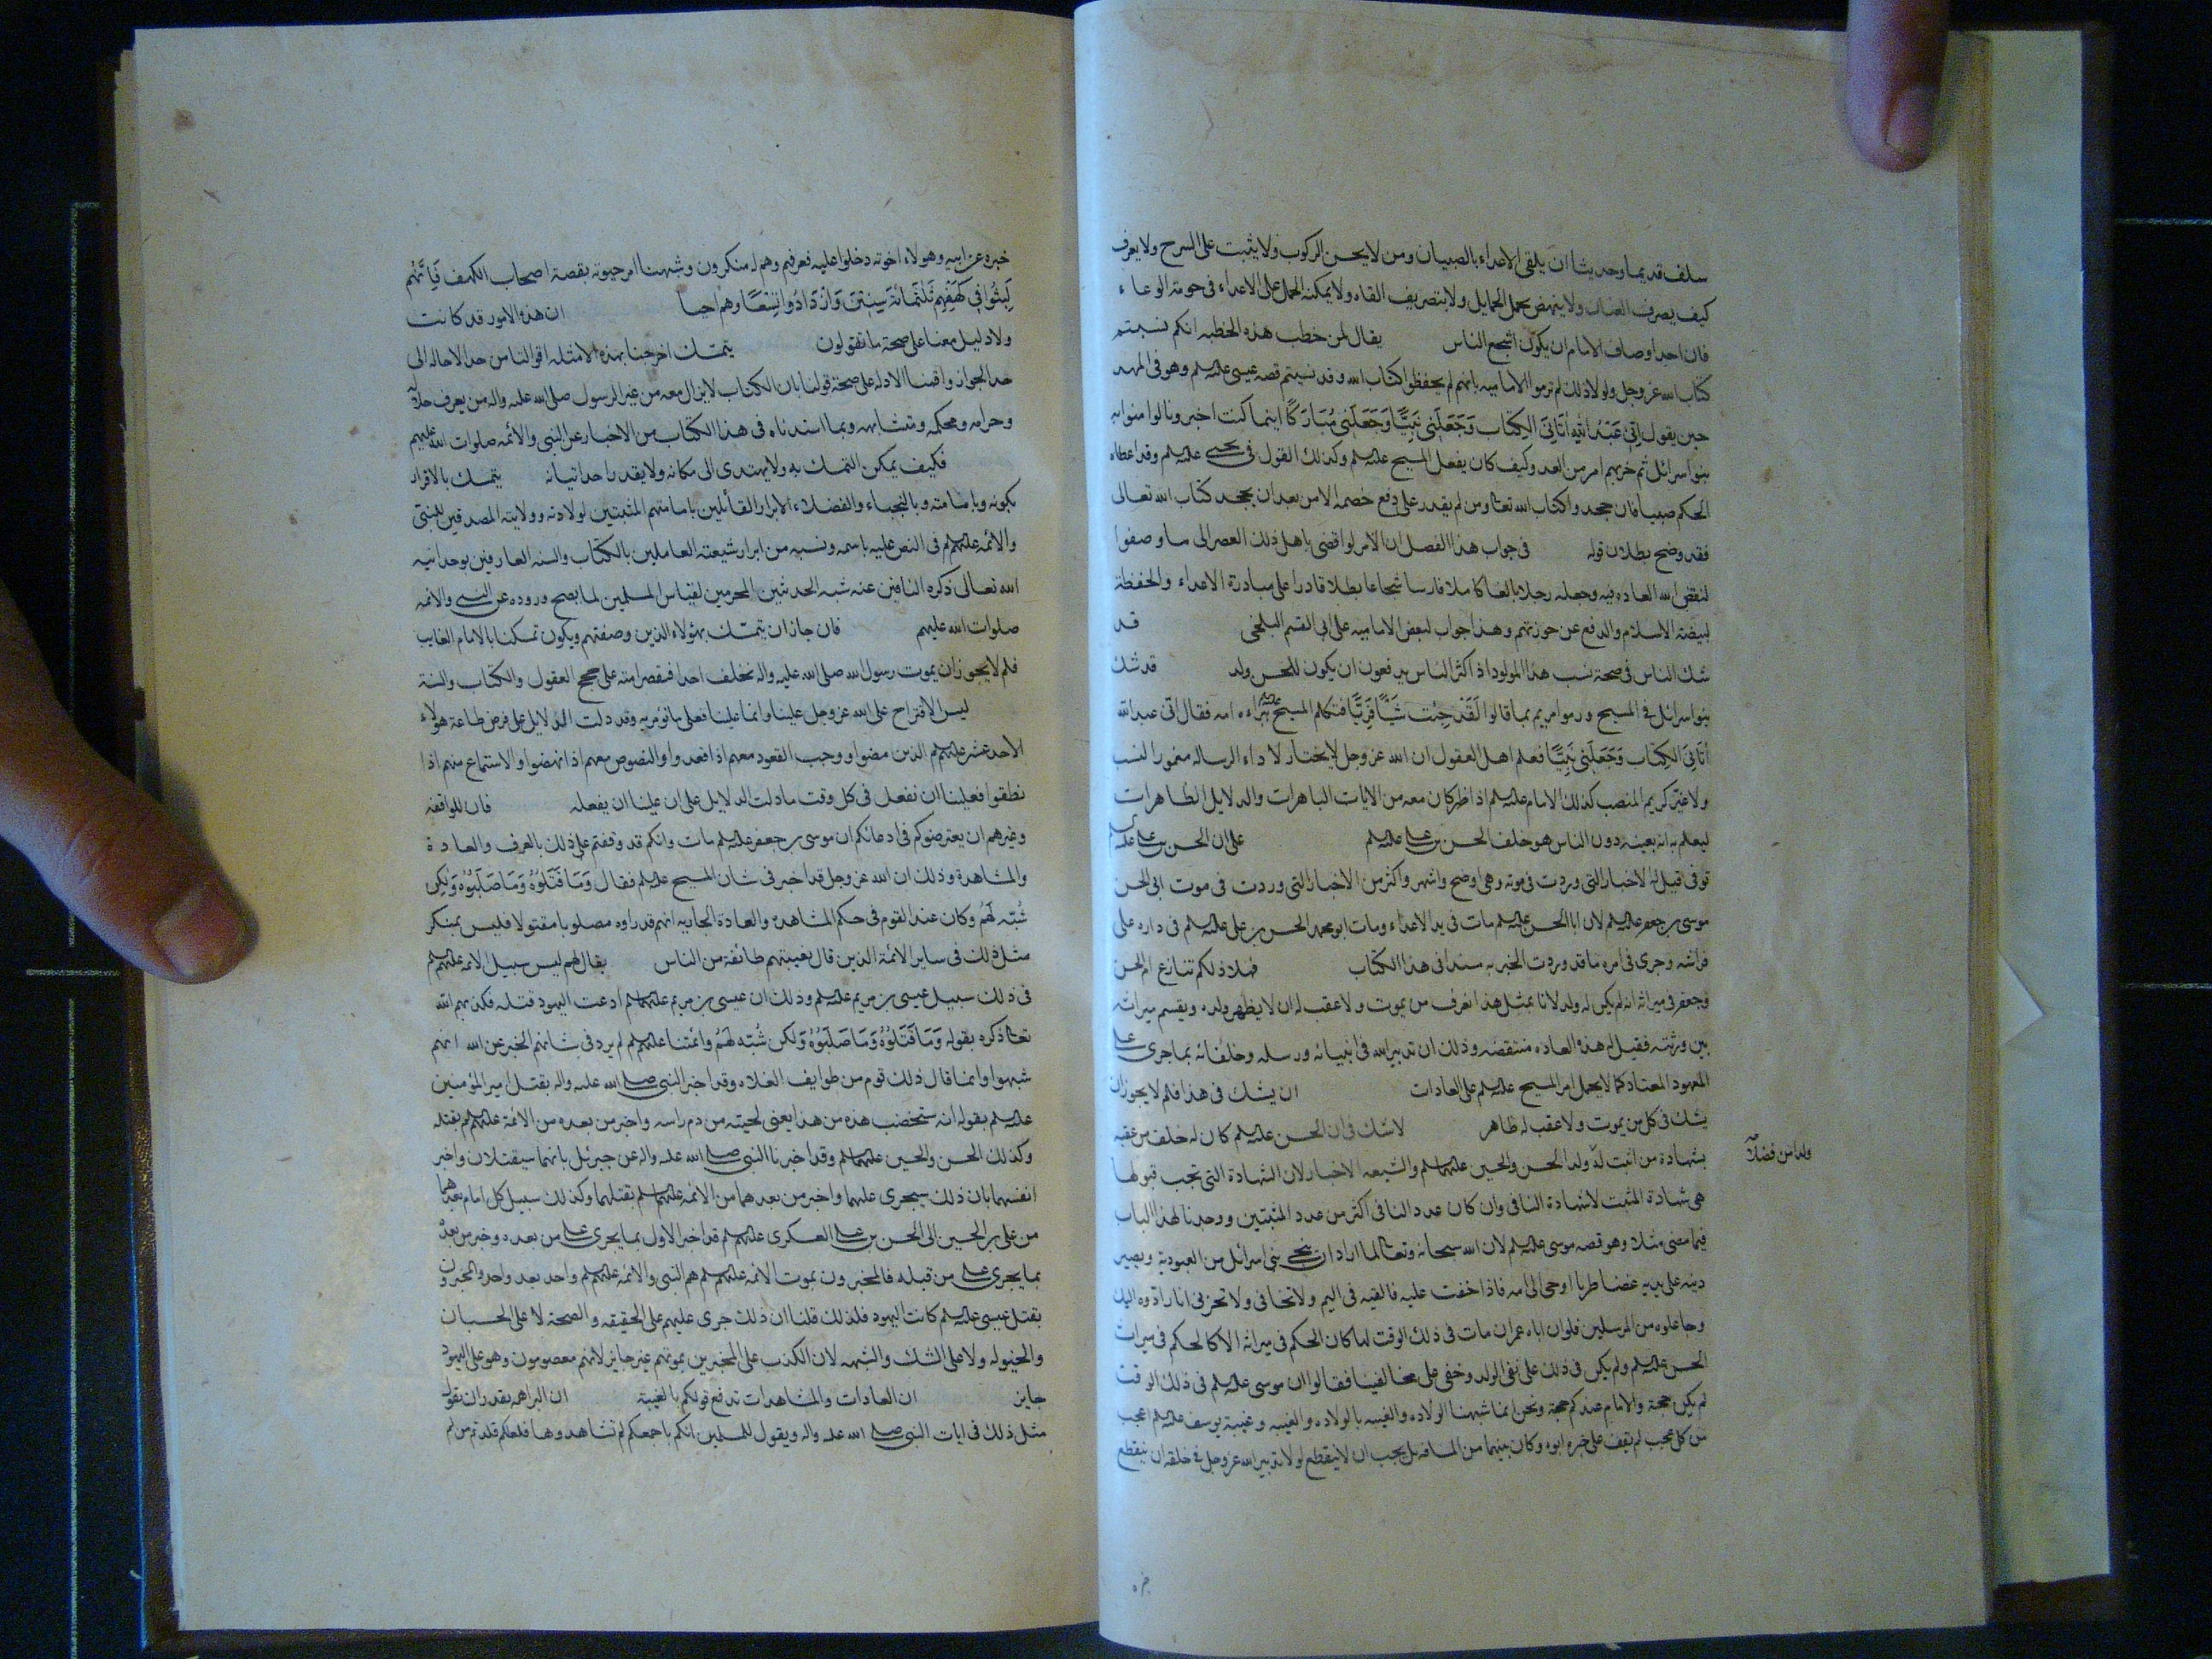 سلف قديما وحديثا ان يلقى الاعداء بالصبيان ومن لا يحسن الركوب ولا يثبت على السرج ولا يعرف
كيف يصرف العنان ولا ينهض بحمل الحمايل ولا بتصريف القناه ولا يمكنه الحمل على الاعداء في حومة الوغاء
فان احد اوصاف الامام ان يكون اشجع الناس يقال لمن خطب هذه الخطبه انكم نسيتم
كتاب الله عز وجل ولولا ذلك لم ترموا الاماميه بانهم لم يحفظوا كتاب الله وقد نسيتم قصه عيسى عليه السلم وهو في المهد
حين يقول اِنّي عَبْدُ اللهِ اٰتَانِيَ الكِتَاب وَجَعَلَنى نَبِيًّا وَجَعَلَنى مُبَارَكًا اينما كنت اخبرونا لو امنوا به
بنوا اسرائل ثم حزبهم امر من العدو كيف كان يفعل المسيح عليه السلم وكذلك القول في يحيى عليه السلم وقد اعطاه
الحكم صبيا فان جحدوا كتاب الله تعا ومن لم يقدر على دفع خصمه الا من بعد ان يجحد كتاب الله تعالى
فقد وضح بطلان قوله في جواب هذا الفصل ان الامر لو اقضى باهل ذلك العصر الى ما وصفوا
لنقض الله العاده فيه وجعله رجلا بالغا كاملا فارسا شجاعا بطلا قادرا على مبادرة الاعداء والحفظة
لبيضة الاسلام والدفع عن حوزتهم وهذا جواب لبعض الاماميه على ابي القسم البلخي قد
شك الناس في صحة نسب هذا المولود اذ اكثر الناس يدفعون ان يكون للحسن ولد قد شك
بنوا اسرائل في المسيح ورموا مريم بما قالوا لَقَد جِئت شَيئًا فَرِيًّا فتكلم المسيح ببراءه امه فقال انّى عبد الله
آتَانِيَ الكِتَاب وَجَعَلَنى نَبِيًّا فعلم اهل العقول ان الله عز وجل لا يختار لاداء الرساله مغمور النسب
ولا غير كريم المنصب كذلك الامام عليه السلم اذا ظهر كان معه من الايات الباهرات والدلايل الظاهرات
ليعلم به انه بعينه دون الناس هو خلف الحسن بن على عليه السلم على ان الحسن بن على عليه السلم
توفى قيل له الاخبار التي وردت في موته وهي اوضح واشهر واكثر من الاخبار التي وردت في موت ابي الحسن
موسى بن جعفر عليه السلم لان ابا الحسن عليه السلم مات في يد الاعداء ومات ابو محمد الحسن بن على عليه السلم في داره على
فراشه وجرى في امره ما قد وردت الخبر به مسندا في هذا الكتاب فهلا دلكم تنازع ام الحسن
وجعفر في ميراثه انه لم يكن له ولد لانا بمثل هذا نعرف من يموت ولا عقب له ان لا يظهر ولده ويقسم ميراثه
بين ورثته فقيل له هذه العاده منتقضه وذلك ان تدبير الله في انبيائه ورسله وخلفائه بما جرى على
المعهود المعتاد كما لا يحمل امر المسيح عليه السلم على العادات ان يشك في هذا فلم لا يجوز ان
يشك في كل من يموت ولا عقب له ظاهر لا شك في ان الحسن عليه السلم كان له خلف من عقبه
بشهادة من اثبت له ولد الحسن والحسين عليهما السلم والشيعه الاخيار لان الشهادة التي تجب قبولها
ولدا من فضلآ
هي شهادة المثبت لا شهادة النافي وان كان عدد النافي اكثر من عدد المثبتين ووجدنا لهذا الباب
فيما مضى مثلا وهو قصه موسى عليه السلم لان الله سبحانه وتعا لما اراد ان ينجي بني اسرائل من العبودية ويصير
دينه على يديه غضا طريا اوحى الى امه فاذا خفت عليه فالقيه في اليم ولا تخافى ولا تحزنى انا رادوه اليك
وجاعلوه من المرسلين فلو ان اباه عمران مات في ذلك الوقت لما كان الحكم في ميراثه الا كالحكم في ميراث
الحسن عليه السلم ولم يكن في ذلك على نفى الولد وخفى على مخالفينا فقالوا ان موسى عليه السلم في ذلك الوقت
لم يكن حجة والامام عندكم حجة ونحن انما شبهنا الولاده والغيبه بالولاده والغيبه وغيبة يوسف عليه السلم اعجب
من كل عجب لم يقف على خبره ابوه وكان بينهما من المسافه مل يجب ان لا ينقطع لولا تدبير الله عز وجل في خلقه ان ينقطع
خبره
خبره عن ابيه وهولاء اخوته دخلوا عليه فعرفهم وهم له منكرون وشبهنا امر حيوته بقصة اصحاب الكهف فَاِنَّهُم
لَبِثُوا في كَهْفِهِم ثَلٰثَمِائة سِنِينَ وَازْدَادُوا تِسْعًا وهم احيا ان هذه الامور قد كانت
ولا دليل معنا على صحة ما تقولون يتمسّك اخرجنا بهذه الامثله اقوالنا من حد الاحاله الى
حد الجواز واقمنا الادله على صحة قولنا بان الكتاب لا يزال معه من عتر الرسول صلى الله عليه واله من يعرف حلاله
وحرامه ومحكمه ومتشابهه وبما اسندناه في هذا الكتاب من الاخبار عن النبي والائمه صلوات الله عليهم
فكيف يمكن التمسك به ولا يهتدى الى مكانه ولا يقدر احد اتيانه يتمسك بالاقرار
بكونه وبامامته وبالنجباء والفضلاء الابرار القائلين بامامتهم المثبتين لولادته وولايته المصدقين للنبى
والائمه عليهم السلم في النص عليه باسمه ونسبه من ابرار شيعته العاملين بالكتاب والسنه العارفين بوحدانيه
الله تعالى ذكره النافين عنه شبه المحدثين المحرمين لقياس المسلمين لما يصح وروده عن النبى والائمه
صلوات الله عليهم فان جاز ان يتمسّك بهؤلاء الذين وصفتهم ويكون تمسكنا بالامام الغايب
فلم لا يجوز ان يموت رسول الله صلى الله عليه واله فخلف احدا فيقصر امته على حجج العقول والكتاب والسنة
ليس الاقتراح على الله عز وجل علينا وانما علينا فعل ما نؤمر به وقد دلت الدلايل على فرض طاعة هولاء
الاحد عشر عليهم السلم الذين مضوا ووجب القعود معهم اذا قعدوا والنهوض معهم اذا نهضوا والاستماع منهم اذا
نطقوا فعلينا ان نفعل في كل وقت ما دلت الدلايل على ان علينا ان يفعله فان للواقفة
وغيرهم ان يعترضوكم في ادعائكم ان موسى بن جعفر عليه السلم مات وانكم قد وقفتم على ذلك بالعرف والعادة
والمشاهدة وذلك ان الله عز وجل قد اخبر في شان المسيح عليه السلم فقال وَمَا قَتَلُوهُ وَمَا صَلَبُوهُ وَلٰكِن
شُبّه لَهُم وكان عند القوم في حكم المشاهده والعادة الجاريه انهم قد راوه مصلوبا مقتولا فليس بمنكر
مثل ذلك في ساير الائمة الذين قال بغيبتهم طائفة من الناس يقال لهم ليس سبيل الائمه عليهم السلم
في ذلك سبيل عيسى بن مريم عليه السلم وذلك ان عيسى بن مريم عليهما السلم ادعت اليهود قتله فكذبهم الله
تعا ذكره بقوله وَمَا قَتَلُوْهُ وَمَا صَلَبُوْهُ وَلكن شُبّه لَهُم وائمتنا عليهم السلم لم يرد في شانهم الخبر عن الله انهم
شبهوا وانما قال ذلك قوم من طوايف الغلاه وقد اخبر النبى صلى الله عليه واله بقتل امير المؤمنين
عليه السلم بقوله انه ستخضب هذه من هذا يعنى لحيته من دم راسه واخبر من بعده من الائمة عليهم السلم بقتله
وكذلك الحسن والحسين عليهما السلم وقد اخبرنا النبى صلى الله عليه واله عن جبرئل بانهما سيقتلان واخبر
انفسهما بان ذلك سيجرى عليهما واخبر من بعدهما من الائمه عليهم السلم بقتلهما وكذلك سبيل كل امام بعدهما
من على بن الحسين الى الحسن بن على العسكرى عليهم السلم قد اخبر الاول بما يجرى على من بعده وخبر من بعده
بما يجرى على من قبله فالمخبرون بموت الائمه عليهم السلم هم النبى والائمه عليهم السلم واحد بعد واحد والمخبرون
بقتل عيسى عليه السلم كانت اليهود فلذلك قلنا ان ذلك جرى عليهم على الحقيقه والصحة لا على الحسبان
والحيلوله ولا على الشك والشبهه لان الكذب على المخبرين بموتهم غير جايز لانهم معصومون وهو على اليهود
جايز ان العادات والمشاهدات تدفع قولكم بالغيبة ان البراهمه يقدر ان يقول
مثل ذلك في ايات النبى صلى الله عليه واله ويقول للمسلمين انكم باجمعكم لم تشاهدوها فلعلكم قلدتم من لم